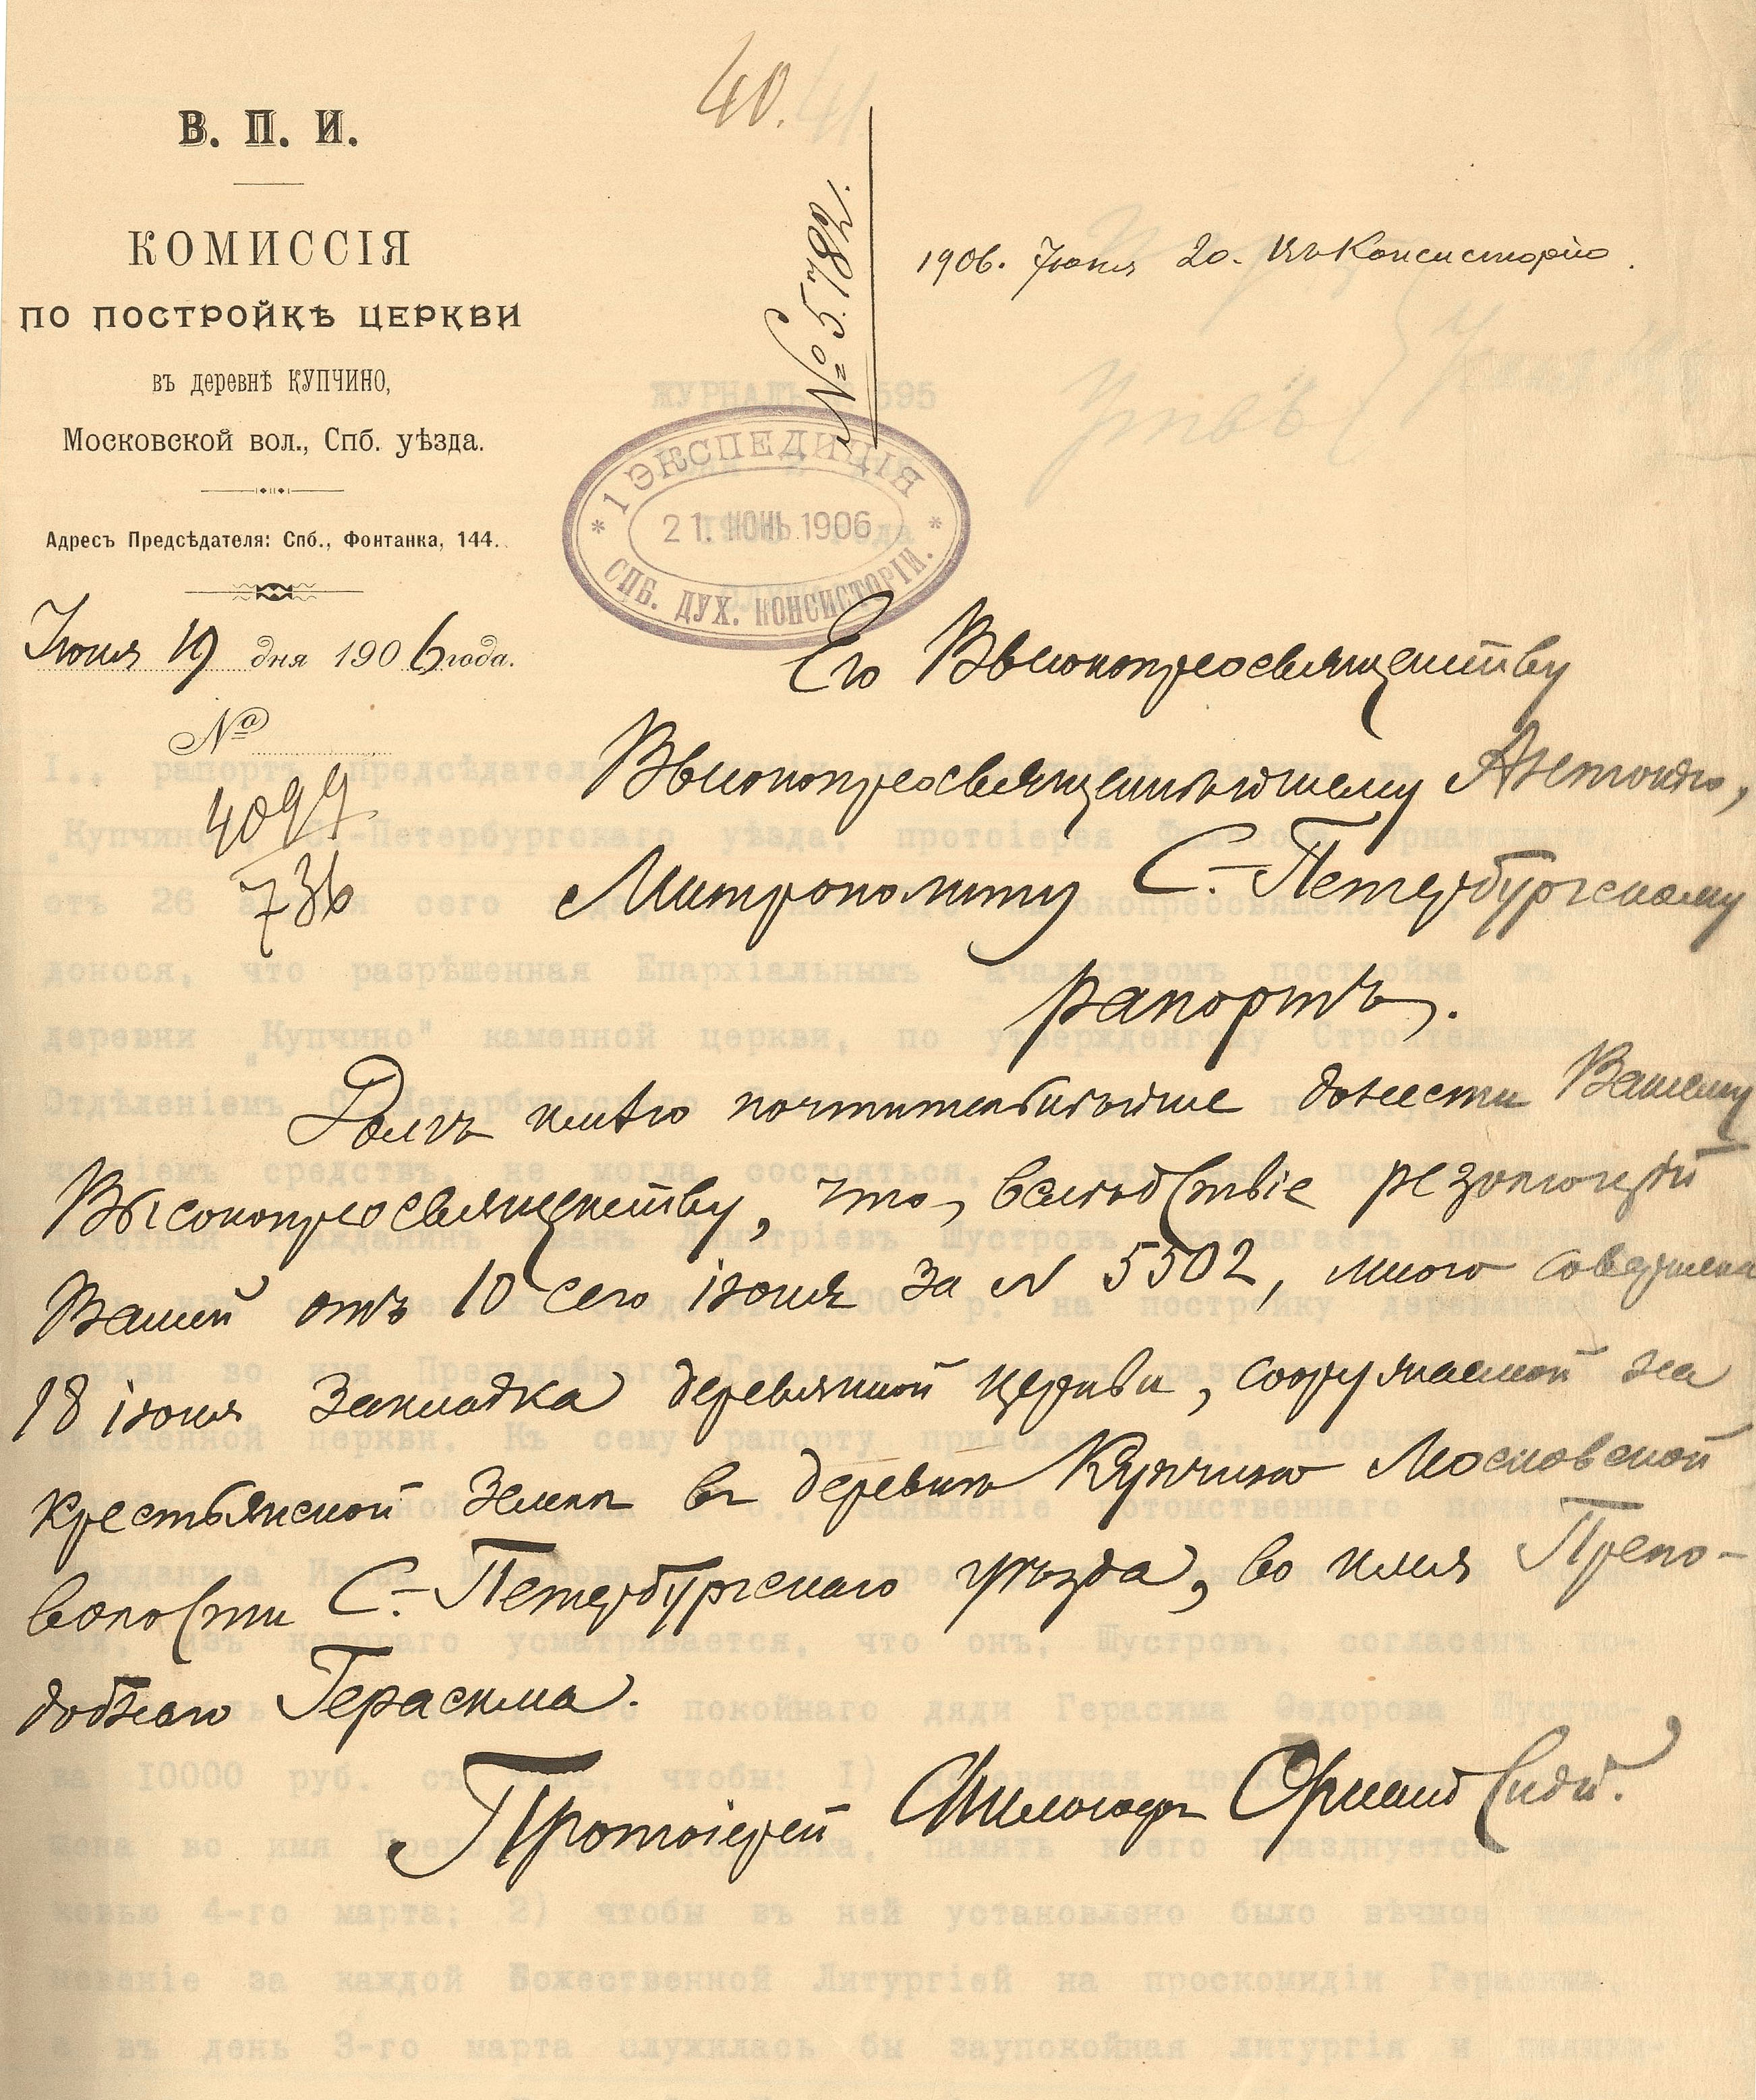 40.
В. П. И.
КОМИССІЯ
ПО ПОСТРОЙКѢ ЦЕРКВИ
въ деревнѣ КУПЧИНО,
Московской вол., Спб. уѣзда.
Адресъ Предсѣдателя: Спб., Фонтанка, 144.
Іюня 19 дня 1906 года.
№
4099
736
№ 5782.
1906. Іюня 20. Въ Консисторію.
1 ЭКСПЕДИЦІЯ
21. ИЮНЬ.1906
СПБ. ДУХ. КОНСИСТОРІИ.
Его Высокопреосвященству
Высокопреосвященнѣйшему Антонію,
Митрополиту С.-Петербургскому
рапортъ.
Долгъ имѣю почтительнѣйше донести Вашему
Высокопреосвященству, что, вслѣдствіе резолюціи
Вашей отъ 10 сего іюня за № 5502, мною совершена
18 іюня закладка деревянной церкви, сооружаемой на
крестьянской землѣ въ деревнѣ Купчино Московской
волости С.-Петербургскаго уѣзда, во имя Препо-
добнаго Герасима.
Протоіерей Философъ Орнатскій.